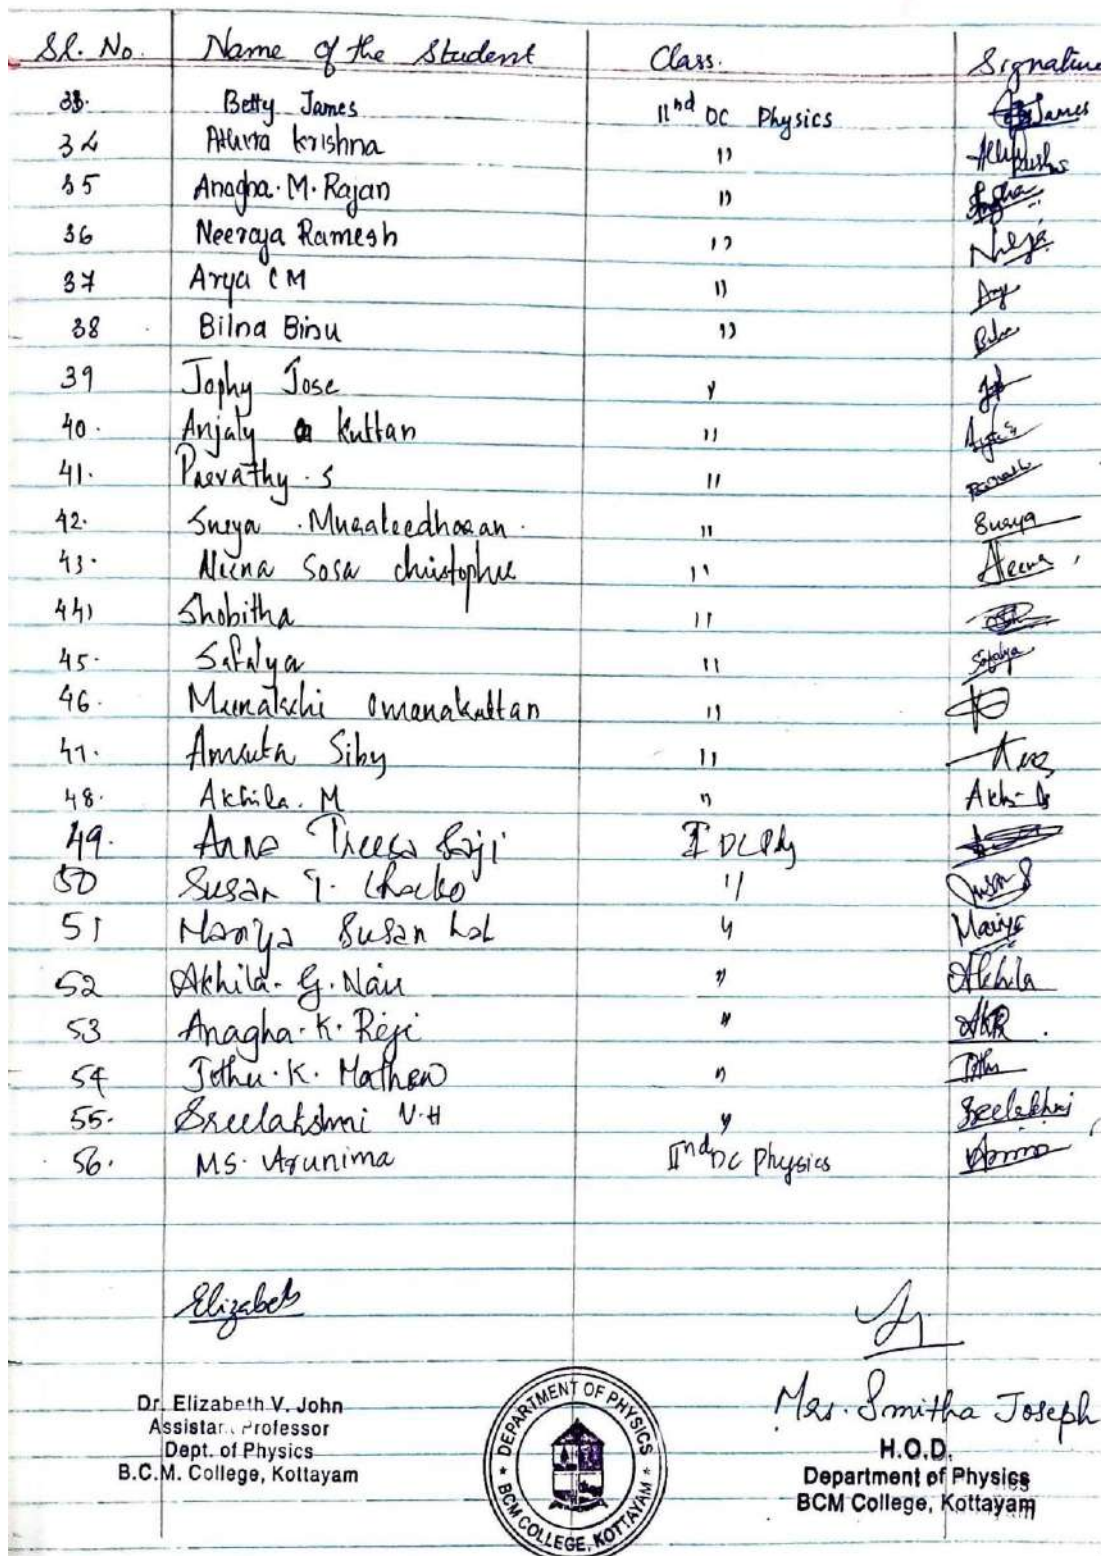 Sl. No. Name of the Student Class. Signature
33. Betty James IInd DC Physics James
34 Athira Krishna "
35 Anagha. M. Rajan "
36 Neeraja Ramesh "
37 Arya C M " Arya
38 Bilna Binu "
39 Jophy Jose "
40. Anjaly Kuttan "
41. Parvathy. S "
42. Surya. Muraleedharan. " Suraya
43. Neena Sosa Christopher " Neena
44) Shobitha "
45. Safalya " Safalya
46. Meenakshi Omanakuttan "
47. Amruta Siby "
48. Akhila. M "
49. Anna Treesa Saji I DC Phy
50 Susan T. Chacko " Susan
51 Mariya Susan Lal " Mariya
52 Akhila. G. Nair " Akhila
53 Anagha. K. Reji " AKR.
54 Jithu. K. Mathew " Jithu
55. Sreelakshmi V.H " Sreelekshmi
56. Ms. Arunima IInd DC Physics
Elizabeth
Dr. Elizabeth V. John
Assistant Professor
Dept. of Physics
B.C.M. College, Kottayam
DEPARTMENT OF PHYSICS
BCM COLLEGE, KOTTAYAM
Mrs. Smitha Joseph
H.O.D.
Department of Physics
BCM College, Kottayam